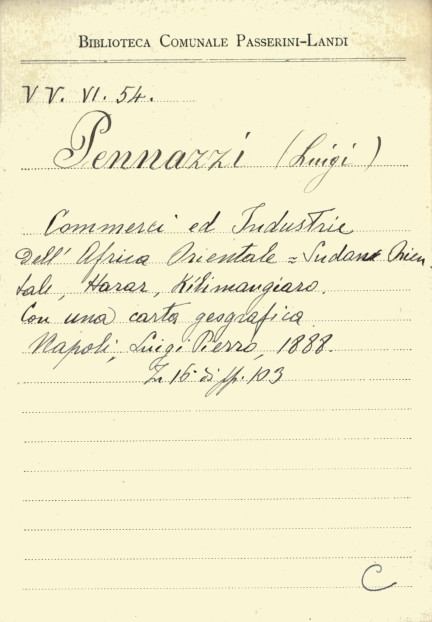 BIBLIOTECA COMUNALE PASSERINI-LANDI
VV. VI. 54.
Pennazzi (Luigi)
Commerci ed Industrie
Dell' Africa Orientale = Sudan Orien-
tale, Harar, Kilimangiaro.
Con una carta geografica
Napoli, Luigi Pierro, 1888.
In 16 di pp. 103
C